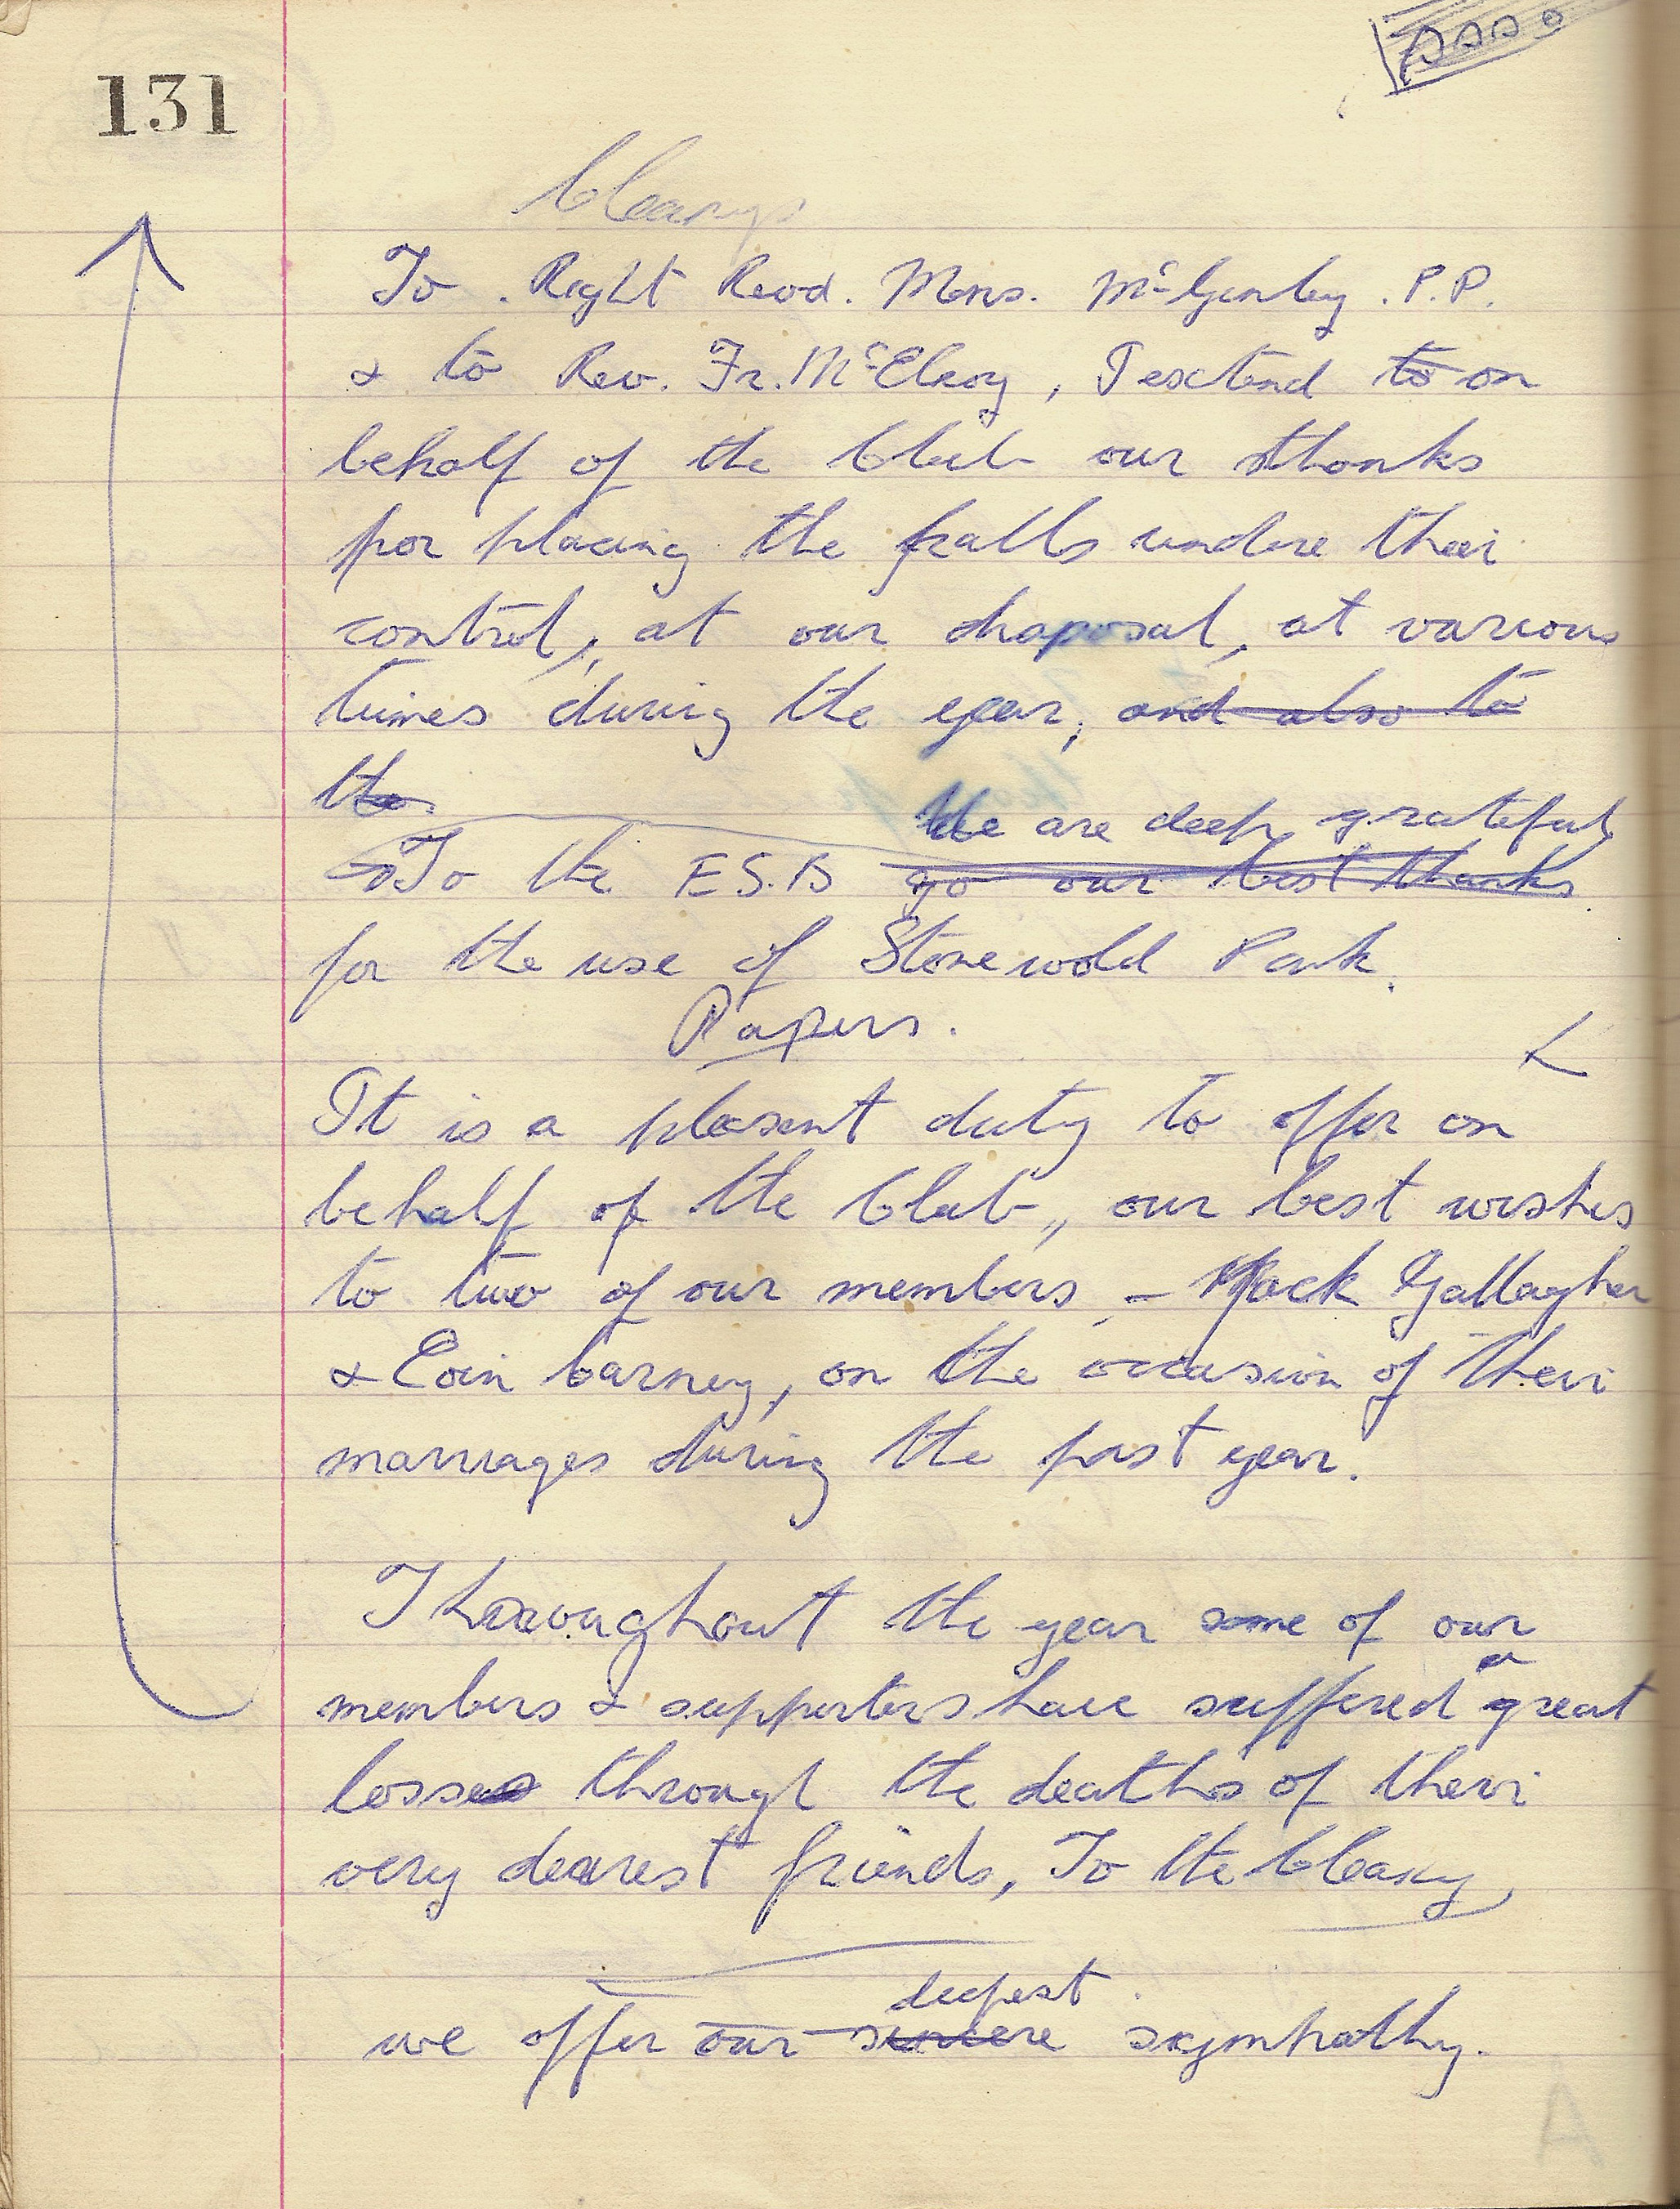 131
To . Right Revd. Mons. McGinley . P.P.
& to Rev. Fr. McElroy, I extend to on
behalf of the Club our thanks
for placing the halls undere their
control, at our disaposal, at various
times during the year, and also to
the.
We are deep grateful
To the E.S.B go our best thanks
for the use of Stonewold Park.
Papers.
It is a plesent duty to offer on
behalf of the Club, our best wishes
to two of our members, - Jack Gallagher
& Eoin Carney, on the occasion of their
marriages during the past year.
Throughout the year some of our
a
members & supporters have suffered great
losses through the deaths of their
very dearest friends, To the Cleary
deepest
we offer our sincere sympathy.